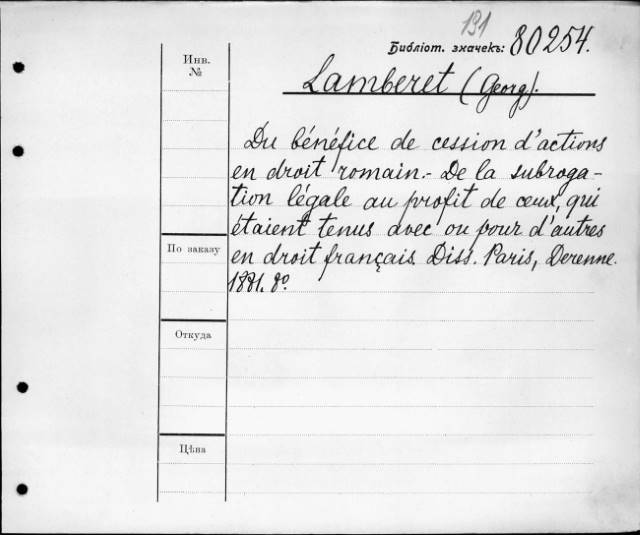 131
Библіот. значекъ: 80254.
Инв.
№
Lamberet (Georg).
Du bénéfice de cession d'actions
en droit romain.- De la subroga-
tion légale au profit de ceux, qui
étaient tenus avec ou pour d'autres
en droit français. Diss. Paris, Derenne.
1881. 8º.
По заказу
Откуда
Цѣна